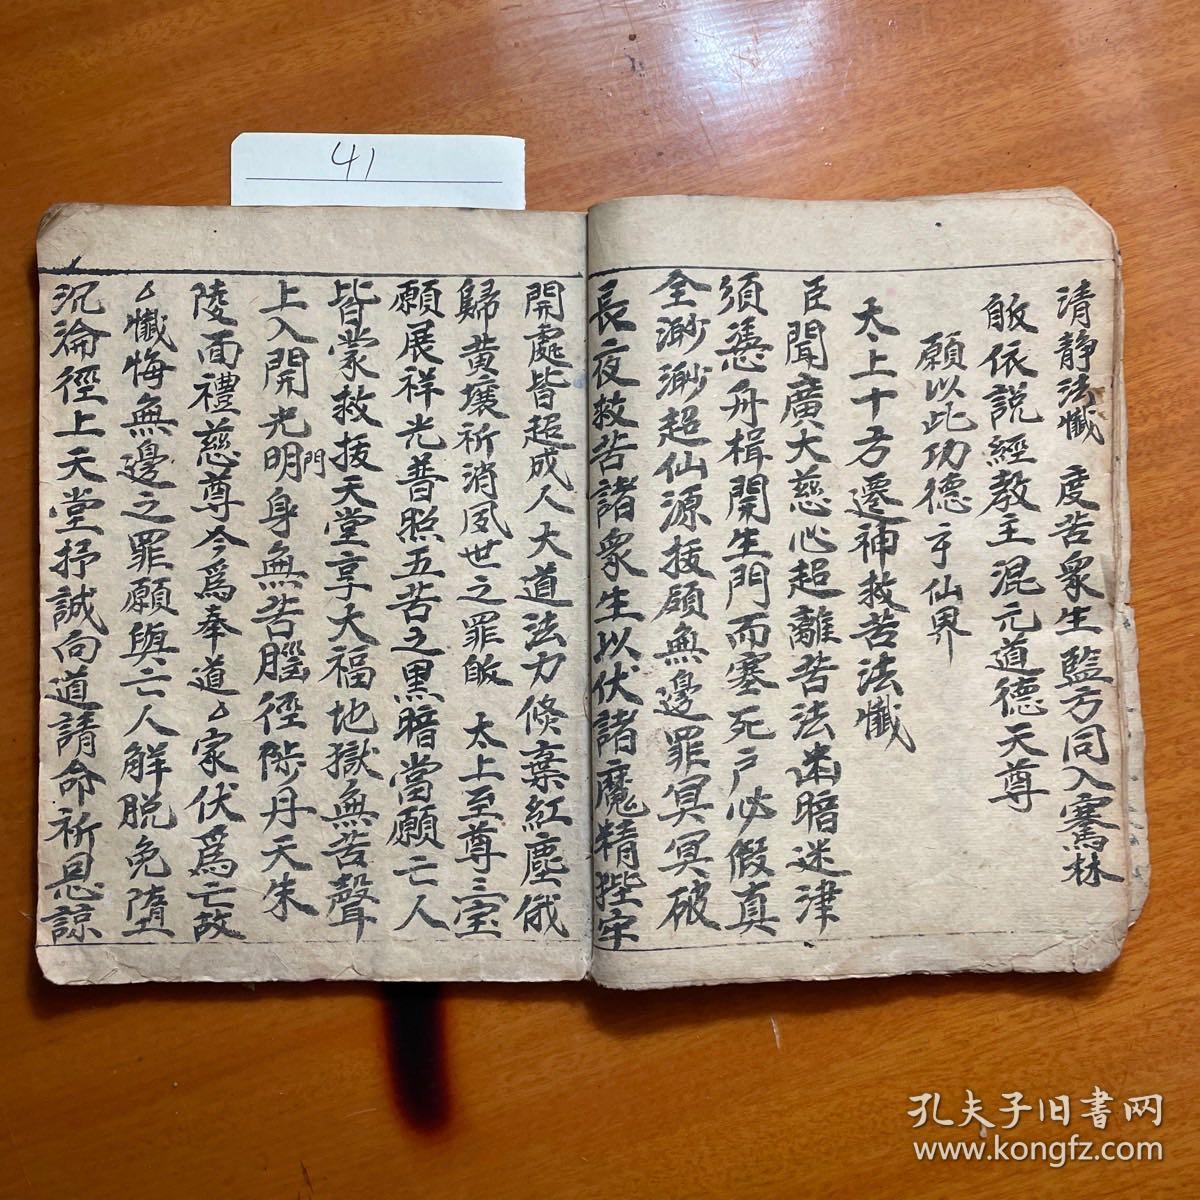 41
清静法懺 度苦衆生監方同入騫林
皈依説經教主混元道德天尊
願以此功德亨仙界
太上十方遷神救苦法懺
臣聞廣大慈心超離苦法幽暗迷津
須憑舟楫開生門而塞死户必假真
全渺渺超仙源拔頭無邊罪冥冥破
長夜救苦諸衆生以伏諸魔精陛牢
開處皆超成人大道法力倏棄紅塵俄
歸黄壤祈消夙世之罪皈 太上至尊三宝
願展祥光普照五苦之黑暗當願亡人
皆蒙救拔天堂享大福地獄無苦聲
上入開光明門身無苦腦徑陟丹天朱
陵面禮慈尊今爲奉道厶家伏爲亡故
厶懺悔無邊之罪願與亡人解脱免墮
沉淪徑上天堂抒誠向道請命祈恩諒
孔夫子旧書网
www.kongfz.com